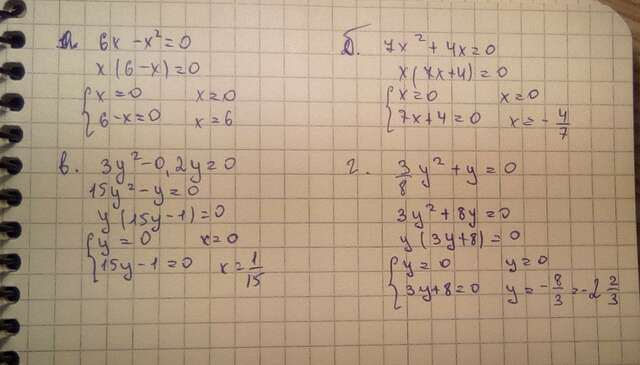 а. 6x - x² = 0
x(6-x) = 0
{ x = 0 x = 0
6-x=0 x = 6
б. 7x² + 4x = 0
x(7x+4) = 0
{ x = 0 x = 0
7x+4 = 0 x = - 4/7
в. 3y² - 0,2y = 0
15y² - y = 0
y(15y-1) = 0
{ y = 0 x = 0
15y-1 = 0 x = 1/15
г. 3/8 y² + y = 0
3y² + 8y = 0
y(3y+8) = 0
{ y = 0 y = 0
3y+8=0 y = - 8/3 = -2 2/3